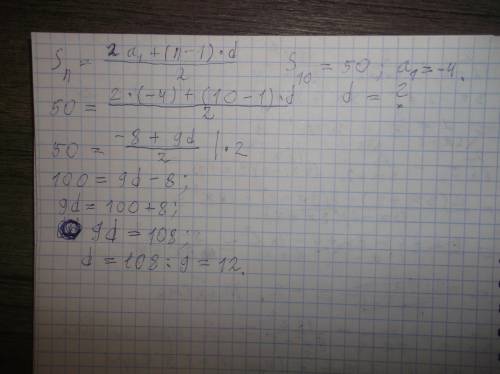 Sₙ = (2a₁ + (n-1)·d)/2
S₁₀ = 50; a₁ = -4.
50 = (2·(-4) + (10-1)·d)/2
d = ?
50 = (-8 + 9d)/2 |·2
100 = 9d - 8;
9d = 100 + 8;
9d = 108;
d = 108 : 9 = 12.